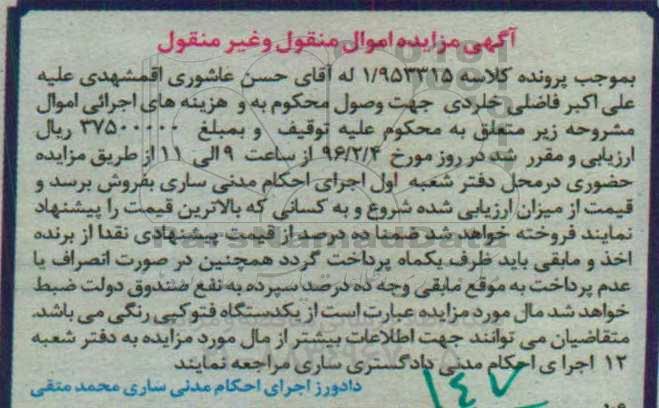 آگهی مزایده اموال منقول وغیر منقول
بموجب پرونده کلاسه ۱/۹۵۳۳۱۵ له آقای حسن عاشوری اقمشهدی علیه
علی اکبر فاضلی خلردی جهت وصول محکوم به و هزینه های اجرائی اموال
مشروحه زیر متعلق به محکوم علیه توقیف و بمبلغ ۳۷۵۰۰۰۰۰ ریال
ارزیابی و مقرر شد در روز مورخ ۹۶/۲/۴ از ساعت ۹ الی ۱۱ از طریق مزایده
حضوری درمحل دفتر شعبه اول اجرای احکام مدنی ساری بفروش برسد و
قیمت از میزان ارزیابی شده شروع و به کسانی که بالاترین قیمت را پیشنهاد
نمایند فروخته خواهد شد ضمنا ده درصد از قیمت پیشنهادی نقدا از برنده
اخذ و مابقی باید ظرف یکماه پرداخت گردد همچنین در صورت انصراف یا
عدم پرداخت به موقع مابقی وجه ده درصد سپرده به نفع صندوق دولت ضبط
خواهد شد مال مورد مزایده عبارت است از یکدستگاه فتوکپی رنگی می باشد.
متقاضیان می توانند جهت اطلاعات بیشتر از مال مورد مزایده به دفتر شعبه
۱۲ اجرا ی احکام مدنی دادگستری ساری مراجعه نمایند
دادورز اجرای احکام مدنی ساری محمد متقی
۱۴۷
ParsNamadData